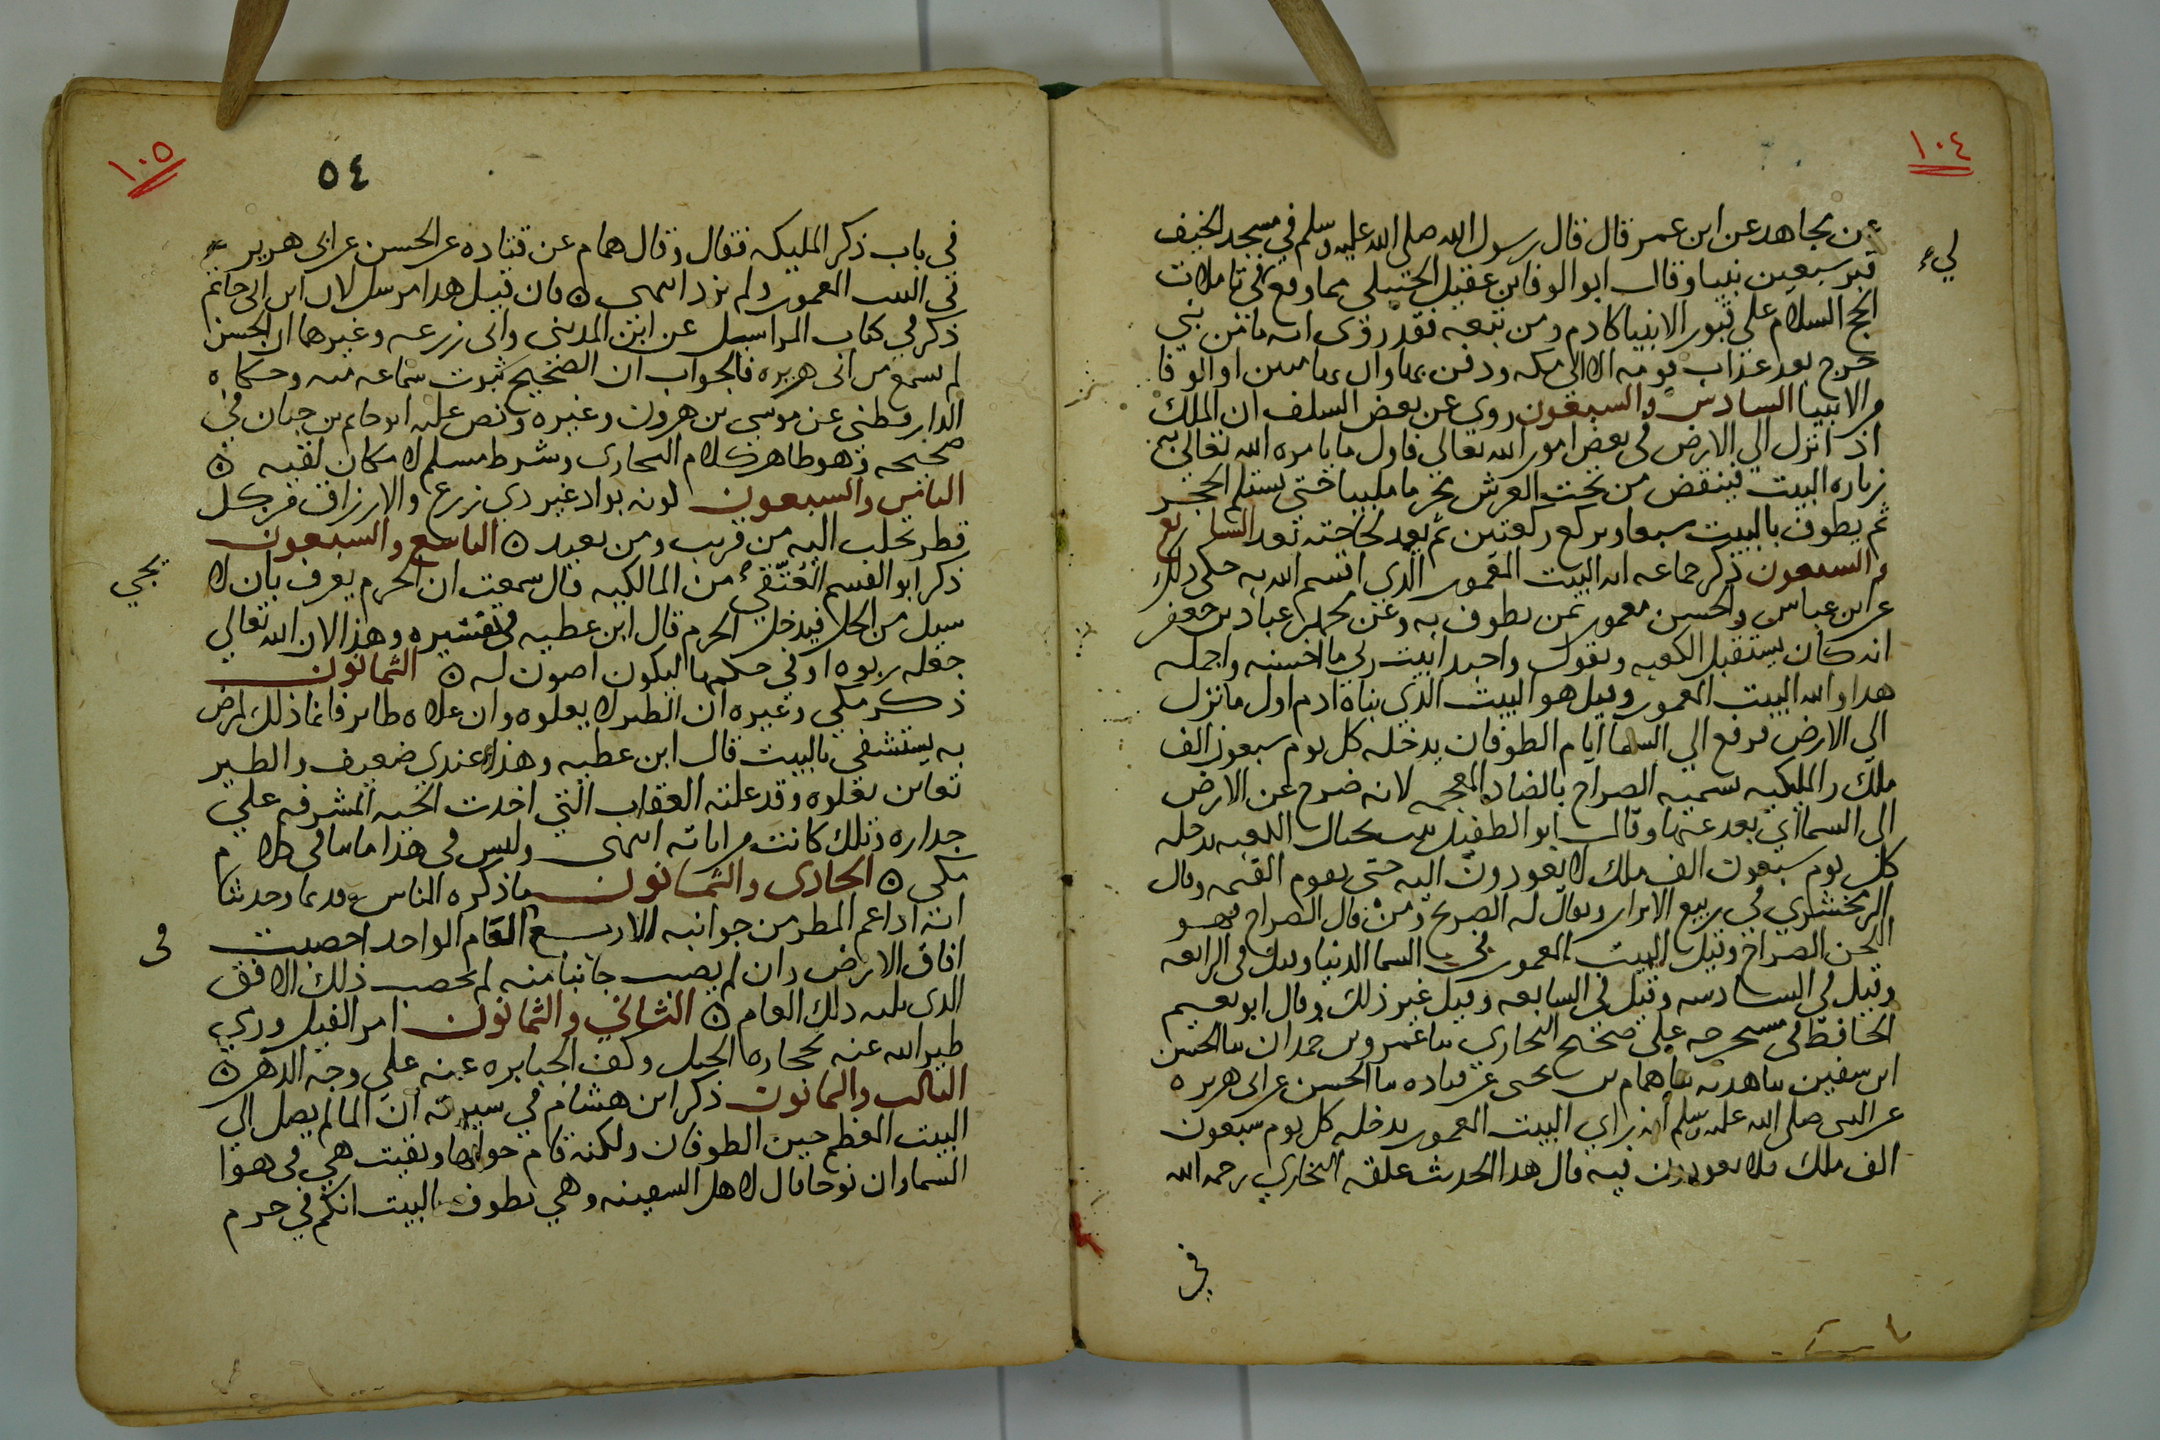 ١٠٤
عن مجاهد عن ابن عمر قال قال رسول الله صلى الله عليه وسلم في مسجد الخيف
قبر سبعين نبيا وقال ابو الوفا ابن عقيل الحنبلي مما وقع لي في تاملات
لي
الحج السلام على قبور الانبيا كادم ومن تبعه فقد روى انه ما من نبي
خرج بعد عذاب قومه الا الى مكه ودفن بها وان بها مبين او الوفا
من الانبيا السادس والسبعون روى عن بعض السلف ان الملك
اذا نزل الي الارض في بعض امور الله تعالى فاول ما يامره الله تعالى به
زياره البيت فينقض من تحت العرش محرما ملبيا حتى يستلم الحجر
ثم يطوف بالبيت سبعا ويركع ركعتين ثم يعد لحاجته بعد السابع
والسبعون ذكر جماعه انه البيت المعمور الذي اقسم الله به حكى ذلك
عن ابن عباس والحسن معمور بمن يطوف به وعن محمد بن عباد بن جعفر
انه كان يستقبل الكعبه ويقول واحد ابيت ربي ما احسنه واجمله
هذا والله البيت المعمور وقيل هو البيت الذي بناه ادم اول ما نزل
الي الارض فرفع الي السما ايام الطوفان يدخله كل يوم سبعون الف
ملك والمليكه تسميه الضراح بالضاد المعجمه لانه ضرح عن الارض
الى السما اي بعد عنها وقال ابو الطفيل بيت بحيال الكعبه يدخله
كل يوم سبعون الف ملك لا يعودون اليه حتى تقوم القيمه وقال
الزمخشري في ربيع الابرار ويقال له الضريح ومن قال الصراح فهو
اللحن الصراح وقيل البيت المعمور في السما الدنيا وقيل في الرابعه
وقيل في السادسه وقيل في السابعه وقيل غير ذلك وقال ابو نعيم
الحافظ في مستخرجه على صحيح البخاري ثنا عمرو بن حمدان ثنا الحسن
ابن سفين ثنا هدبه ثنا همام بن يحى عن قتاده ثنا الحسن عن ابي هريره
عن النبي صلى الله عليه وسلم انه راي البيت المعمور يدخله كل يوم سبعون
الف ملك فلا يعودون فيه قال هذا الحديث علقه البخاري رحمه الله
في
١٠٥
٥٤
في باب ذكر المليكه فقال وقال همام عن قتاده عن الحسن عن ابي هريره
في البيت المعمور ولم يزد انتهى ۞ فان قيل هذا مرسل لان ابن ابي حاتم
ذكر في كتاب المراسيل عن ابن المديني وابي زرعه وغيرهما ان الحسن
لم يسمع من ابي هريره فالجواب ان الصحيح ثبوت سماعه منه وحكاه
الدارقطني عن موسى بن هرون وغيره ونص عليه ابو حاتم بن حبان في
صحيحه وهو ظاهر كلام البخاري وشرط مسلم لامكان لقيه ۞
الثامن والسبعون كونه بواد غير ذي زرع والارزاق من كل
قطر تجلب اليه من قريب ومن بعيد ۞ التاسع والسبعون
ذكر ابو القسم العتقي من المالكيه قال سمعت ان الحرم يعرف بان لا
يجي
سيل من الحل فيدخل الحرم قال ابن عطيه في تفسيره وهذا لان الله تعالي
جعله ربوه او في حكمها ليكون اصون له ۞ الثمانون
ذكر مكي وغيره ان الطير لا يعلوه وان علاه طاير فانما ذلك لمرض
به يستشفى بالبيت قال ابن عطيه وهذا عندي ضعيف والطير
تعاين تعلوه وقد علته العقاب التي اخذت الحيه المشرفه علي
جداره وتلك كانت من اياته انتهى وليس في هذا ما ينافي كلام
مكي ۞ الحادى والثمانون ما ذكره الناس قديما وحديثا
انه اذا عم المطر من جوانبه الاربع العام الواحد احصبت
في
افاق الارض وان لم يصب جانبا منه لم يخصب ذلك الافق
الذى يليه ذلك العام ۞ الثاني والثمانون امر الفيل ورمي
طير الله عنه بحجاره السجيل وكف الجبابره عنه علي وجه الدهر ۞
الثالث والثمانون ذكر ابن هشام في سيرته ان الما لم يصل الي
البيت المعظم حين الطوفان ولكنه قام حولها وبقيت هي في هوا
السما وان نوحا قال لاهل السفينه وهي تطوف بالبيت انكم في حرم